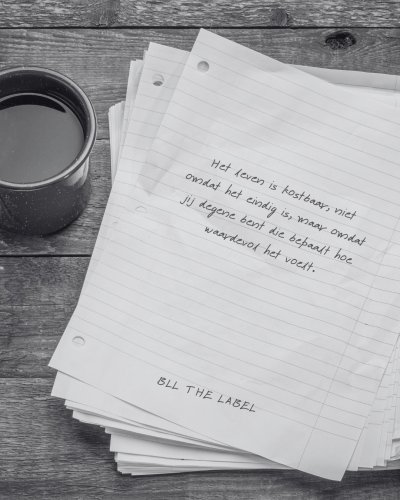 Het leven is kostbaar, niet
omdat het eindig is, maar omdat
jij degene bent die bepaalt hoe
waardevol het voelt.
BLL THE LABEL